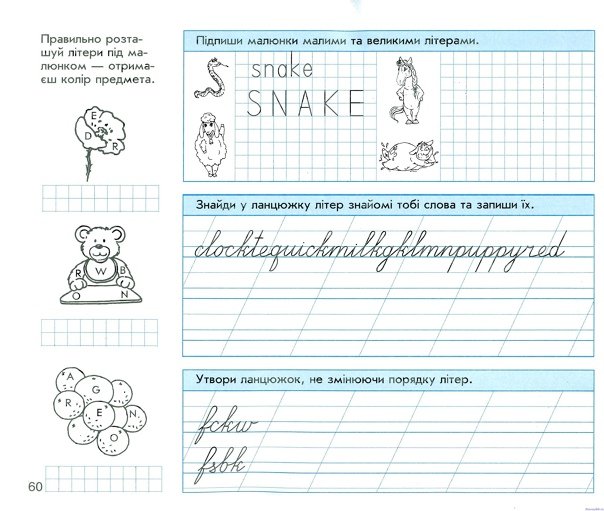 Правильно розта-
шуй літери під ма-
люнком — отрима-
єш колір предмета.
E
D R
R W B
O N
A
G
R E N
O
60
Підпиши малюнки малими та великими літерами.
snake
SNAKE
Знайди у ланцюжку літер знайомі тобі слова та запиши їх.
clocktequickmilkgklmnpuppyred
Утвори ланцюжок, не змінюючи порядку літер.
fckw
fsbk